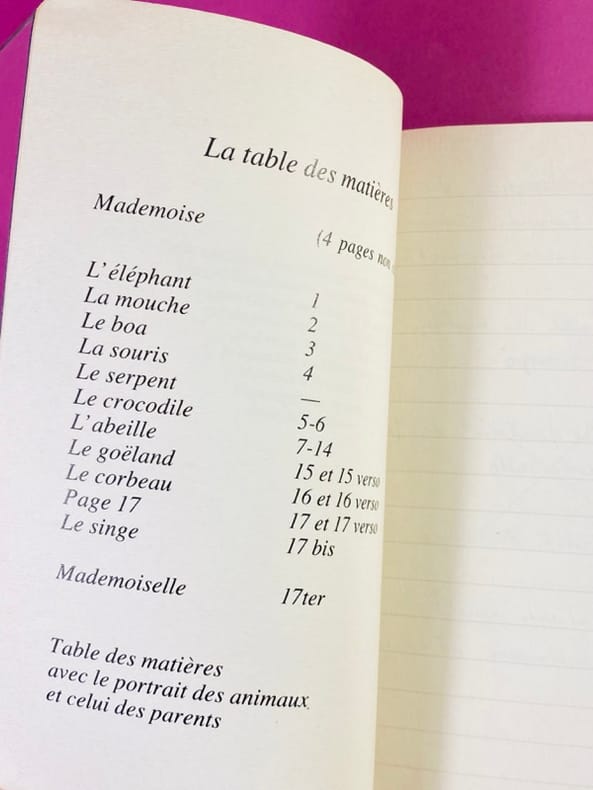 La table des matières
Mademoise
(4 pages non
L'éléphant 1
La mouche 2
Le boa 3
La souris 4
Le serpent —
Le crocodile 5-6
L'abeille 7-14
Le goëland 15 et 15 verso
Le corbeau 16 et 16 verso
Page 17 17 et 17 verso
Le singe 17 bis
Mademoiselle 17ter
Table des matières
avec le portrait des animaux
et celui des parents